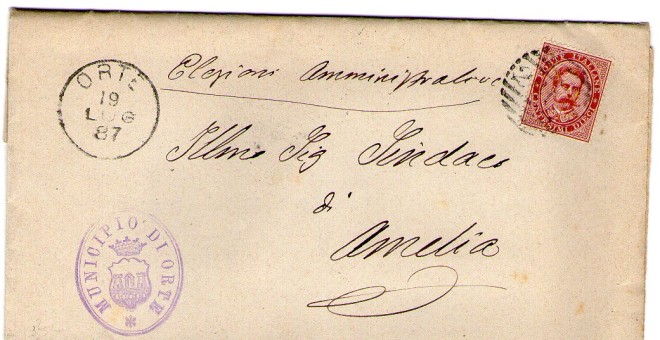 ORTE
19
LUG
87
Elezioni Amministrative
POSTE ITALIANE
CENTESIMI DIECI
Illmo Sig Sindaco
di
Amelia
MUNICIPIO DI ORTE